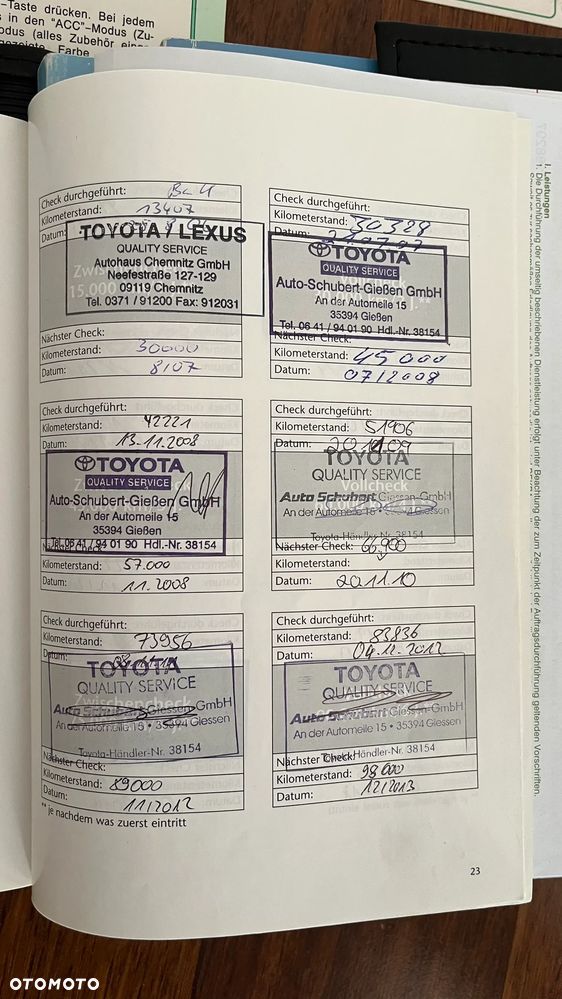 -Taste drücken. Bei jedem
s in den "ACC"-Modus (Zu-
odus (alles Zubehör
Farbe
Check durchgeführt:
Kilometerstand: 13407
Datum:
TOYOTA / LEXUS
QUALITY SERVICE
Autohaus Chemnitz GmbH
Neefestraße 127-129
09119 Chemnitz
Tel. 0371 / 91200 Fax: 912031
15.000
Nächster Check:
Kilometerstand: 30000
Datum: 8107
Check durchgeführt:
Kilometerstand: 30329
Datum:
TOYOTA
QUALITY SERVICE
Auto-Schubert-Gießen GmbH
An der Automeile 15
35394 Gießen
Tel. 06 41 / 94 01 90 Hdl.-Nr. 38154
Nächster Check:
Kilometerstand: 45000
Datum: 07/2008
Check durchgeführt:
Kilometerstand: 42221
Datum: 13.11.2008
TOYOTA
QUALITY SERVICE
Auto-Schubert-Gießen GmbH
An der Automeile 15
35394 Gießen
Tel. 06 41 / 94 01 90 Hdl.-Nr. 38154
Nächster Check:
Kilometerstand: 57.000
Datum: 11.2008
Check durchgeführt:
Kilometerstand: 51906
Datum:
TOYOTA
QUALITY SERVICE
Vollcheck
Auto Schubert Giessen GmbH
An der Automeile 15 • 35394 Giessen
Toyota-Händler-Nr. 38154
Nächster Check:
Kilometerstand: 66.900
Datum: 20.11.10
Check durchgeführt:
Kilometerstand: 73956
Datum:
TOYOTA
QUALITY SERVICE
Zwischencheck
Auto Schubert Giessen GmbH
An der Automeile 15 • 35394 Giessen
Toyota-Händler-Nr. 38154
Nächster Check:
Kilometerstand: 89000
Datum: 11/2012
Check durchgeführt:
Kilometerstand: 83836
Datum: 04.12.2012
TOYOTA
QUALITY SERVICE
Auto Schubert Giessen GmbH
An der Automeile 15 • 35394 Giessen
Toyota-Händler-Nr. 38154
Nächster Check:
Kilometerstand: 98000
Datum: 12/2013
** je nachdem was zuerst eintritt
23
I. Leistungen
1. Die Durchführung der umseitig beschriebenen Dienstleistung erfolgt unter Beachtung der zum Zeitpunkt der Auftragsdurchführung geltenden Vorschriften.
OTOMOTO